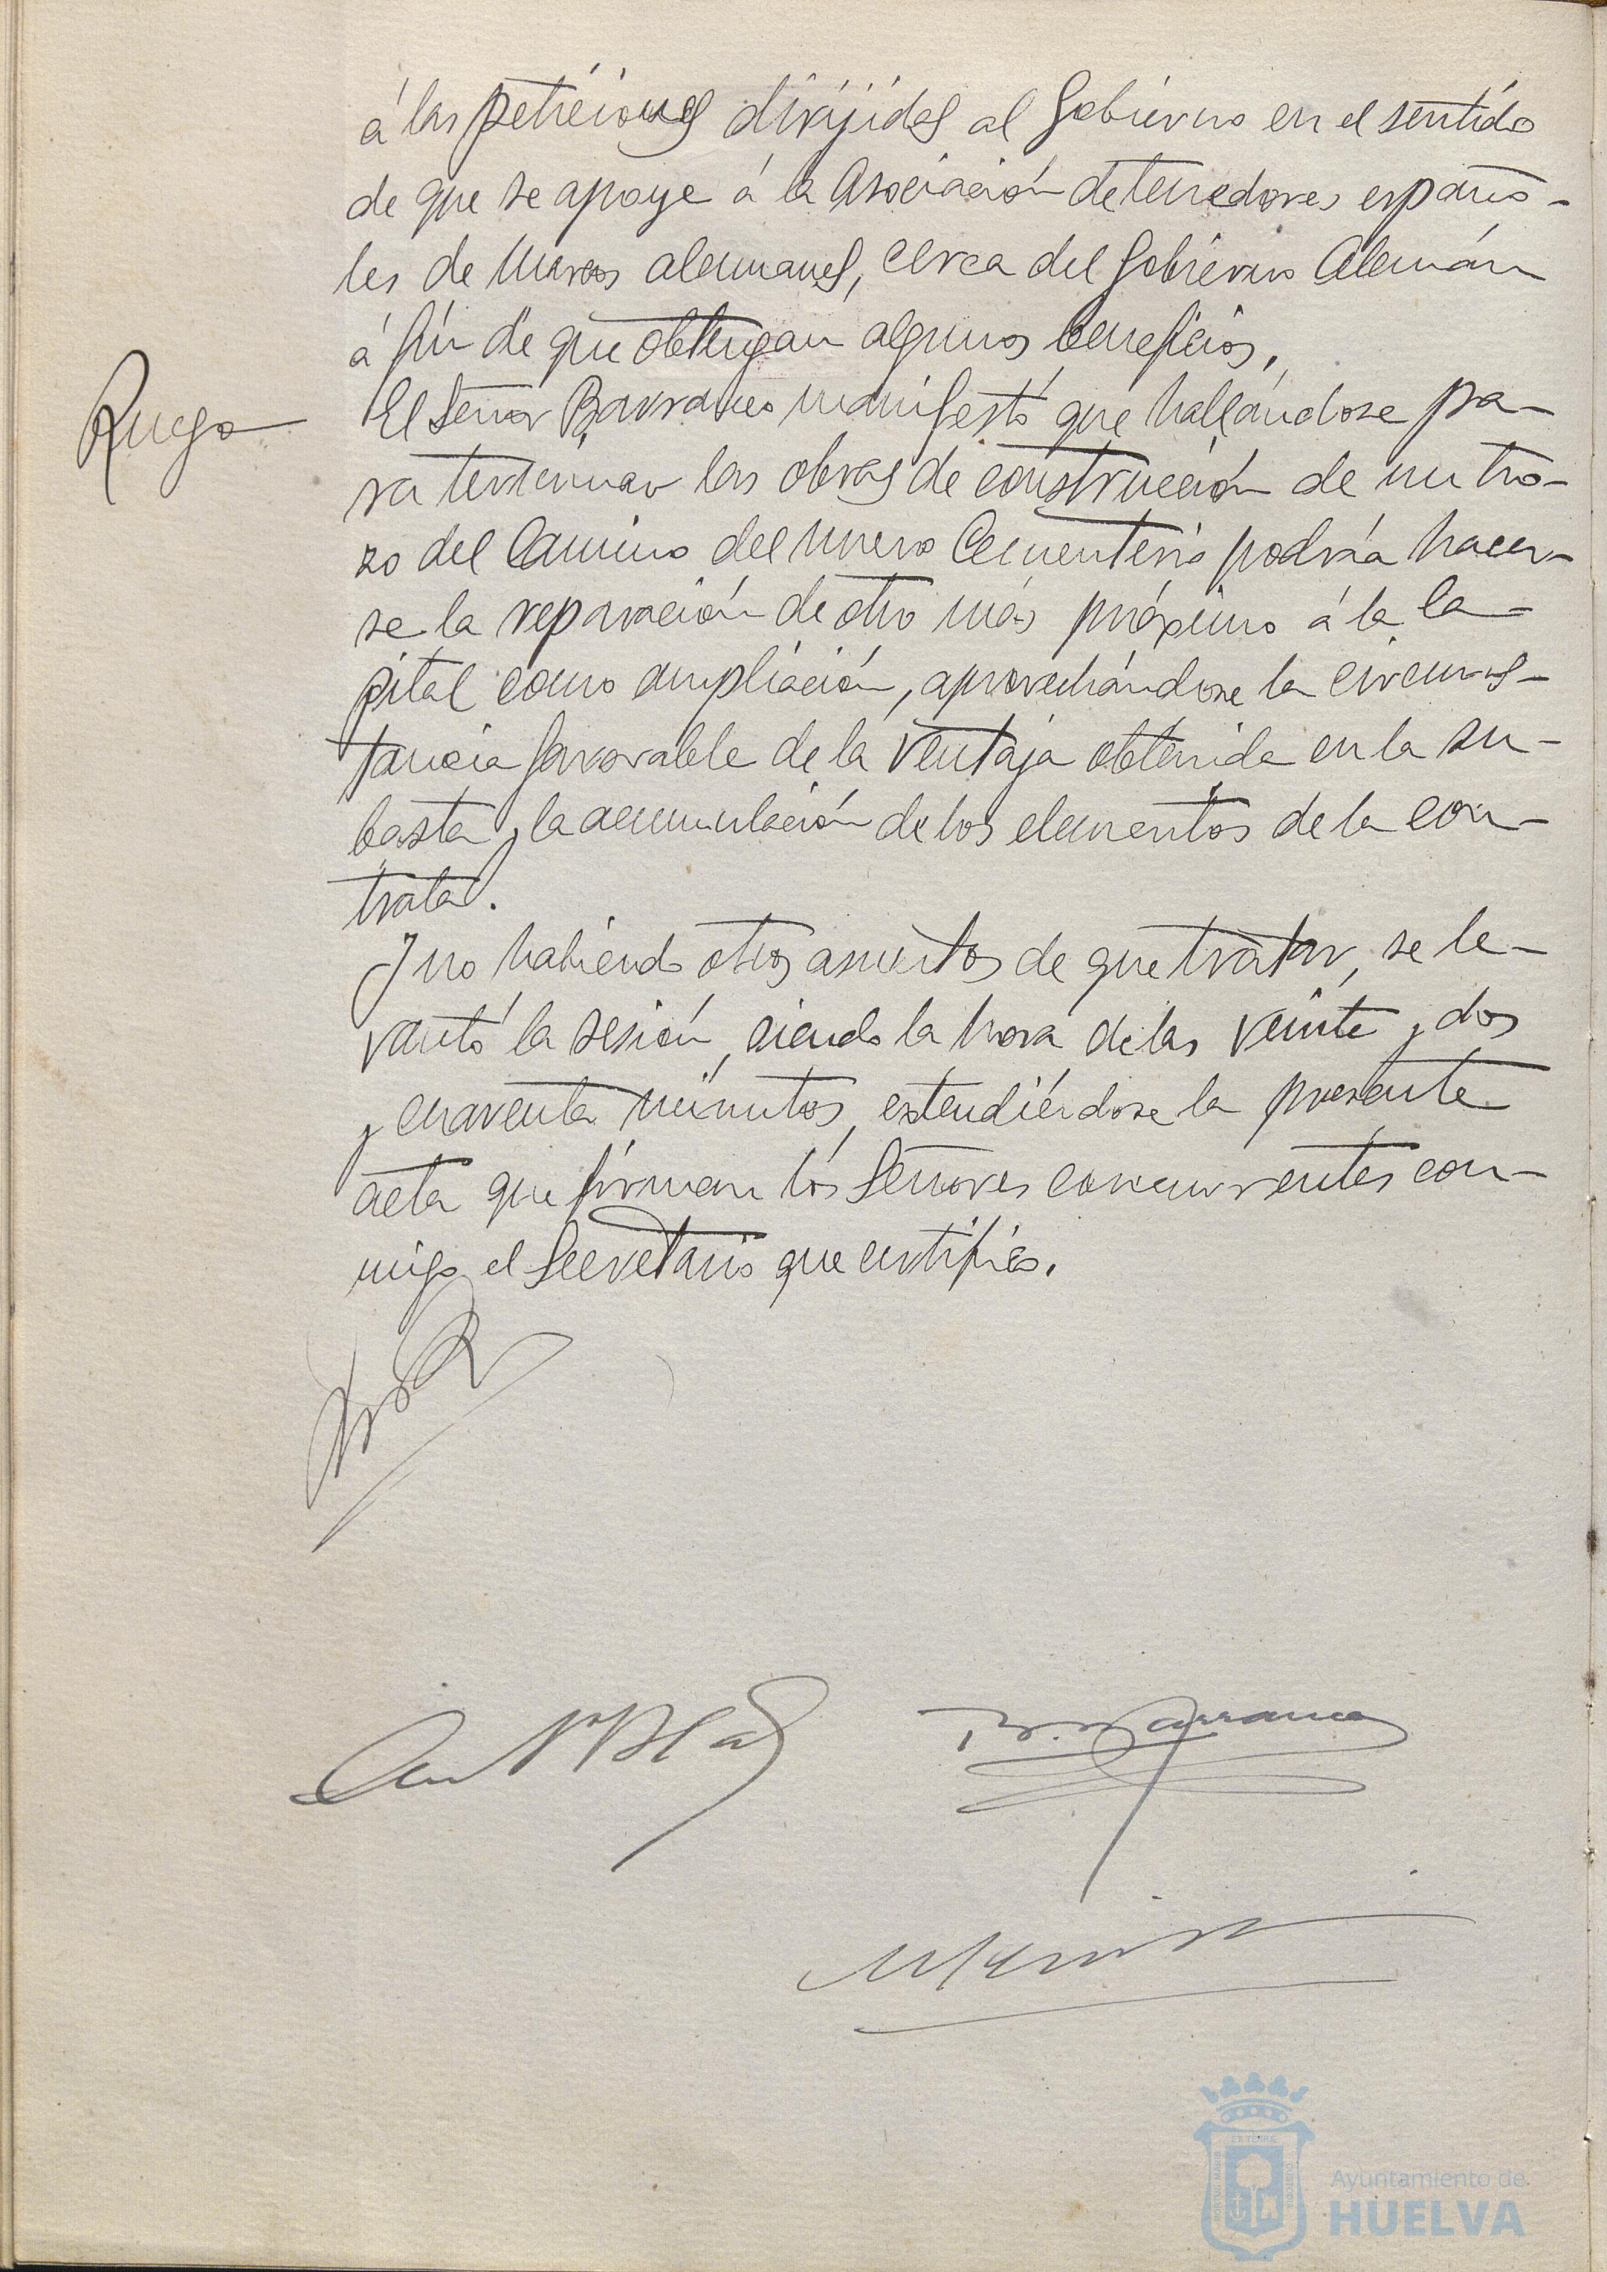 á las peticiones dirijidas al Gobierno en el sentido
de que se apoye á la Asociación de tenedores españo-
les de marcos alemanes, cerca del Gobierno Alemán
á fin de que obtengan algunos beneficios.
Ruego
El Señor Barranco manifestó que hallándose pa-
ra terminar las obras de construcción de un tro-
zo del Camino del nuevo Cementerio podría hacer-
se la reparación de otro más próximo á la Ca-
pital como ampliación, aprovechándose la circuns-
tancia favorable de la ventaja obtenida en la su-
basta y la acumulación de los elementos de la con-
trata.
Y no habiendo otros asuntos de que tratar, se le-
vantó la sesión, siendo la hora de las veinte y dos
y cuarenta minutos, estendiéndose la presente
acta que firman los Señores concurrentes con-
migo el Secretario que certifico.
Barranco
EX TERRE
Ayuntamiento de
HUELVA